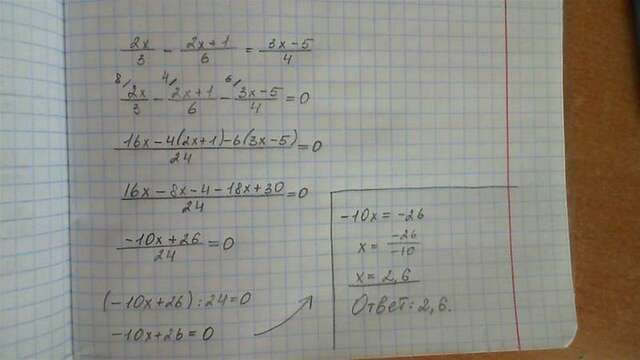 2x/3 - 2x+1/6 = 3x-5/4
8/ 2x/3 - 4/ 2x+1/6 - 6/ 3x-5/4 = 0
16x-4(2x+1)-6(3x-5)/24 = 0
16x-8x-4-18x+30/24 = 0
-10x+26/24 = 0
(-10x+26):24=0
-10x+26=0
-10x = -26
x = -26/-10
x = 2,6
Ответ: 2,6.